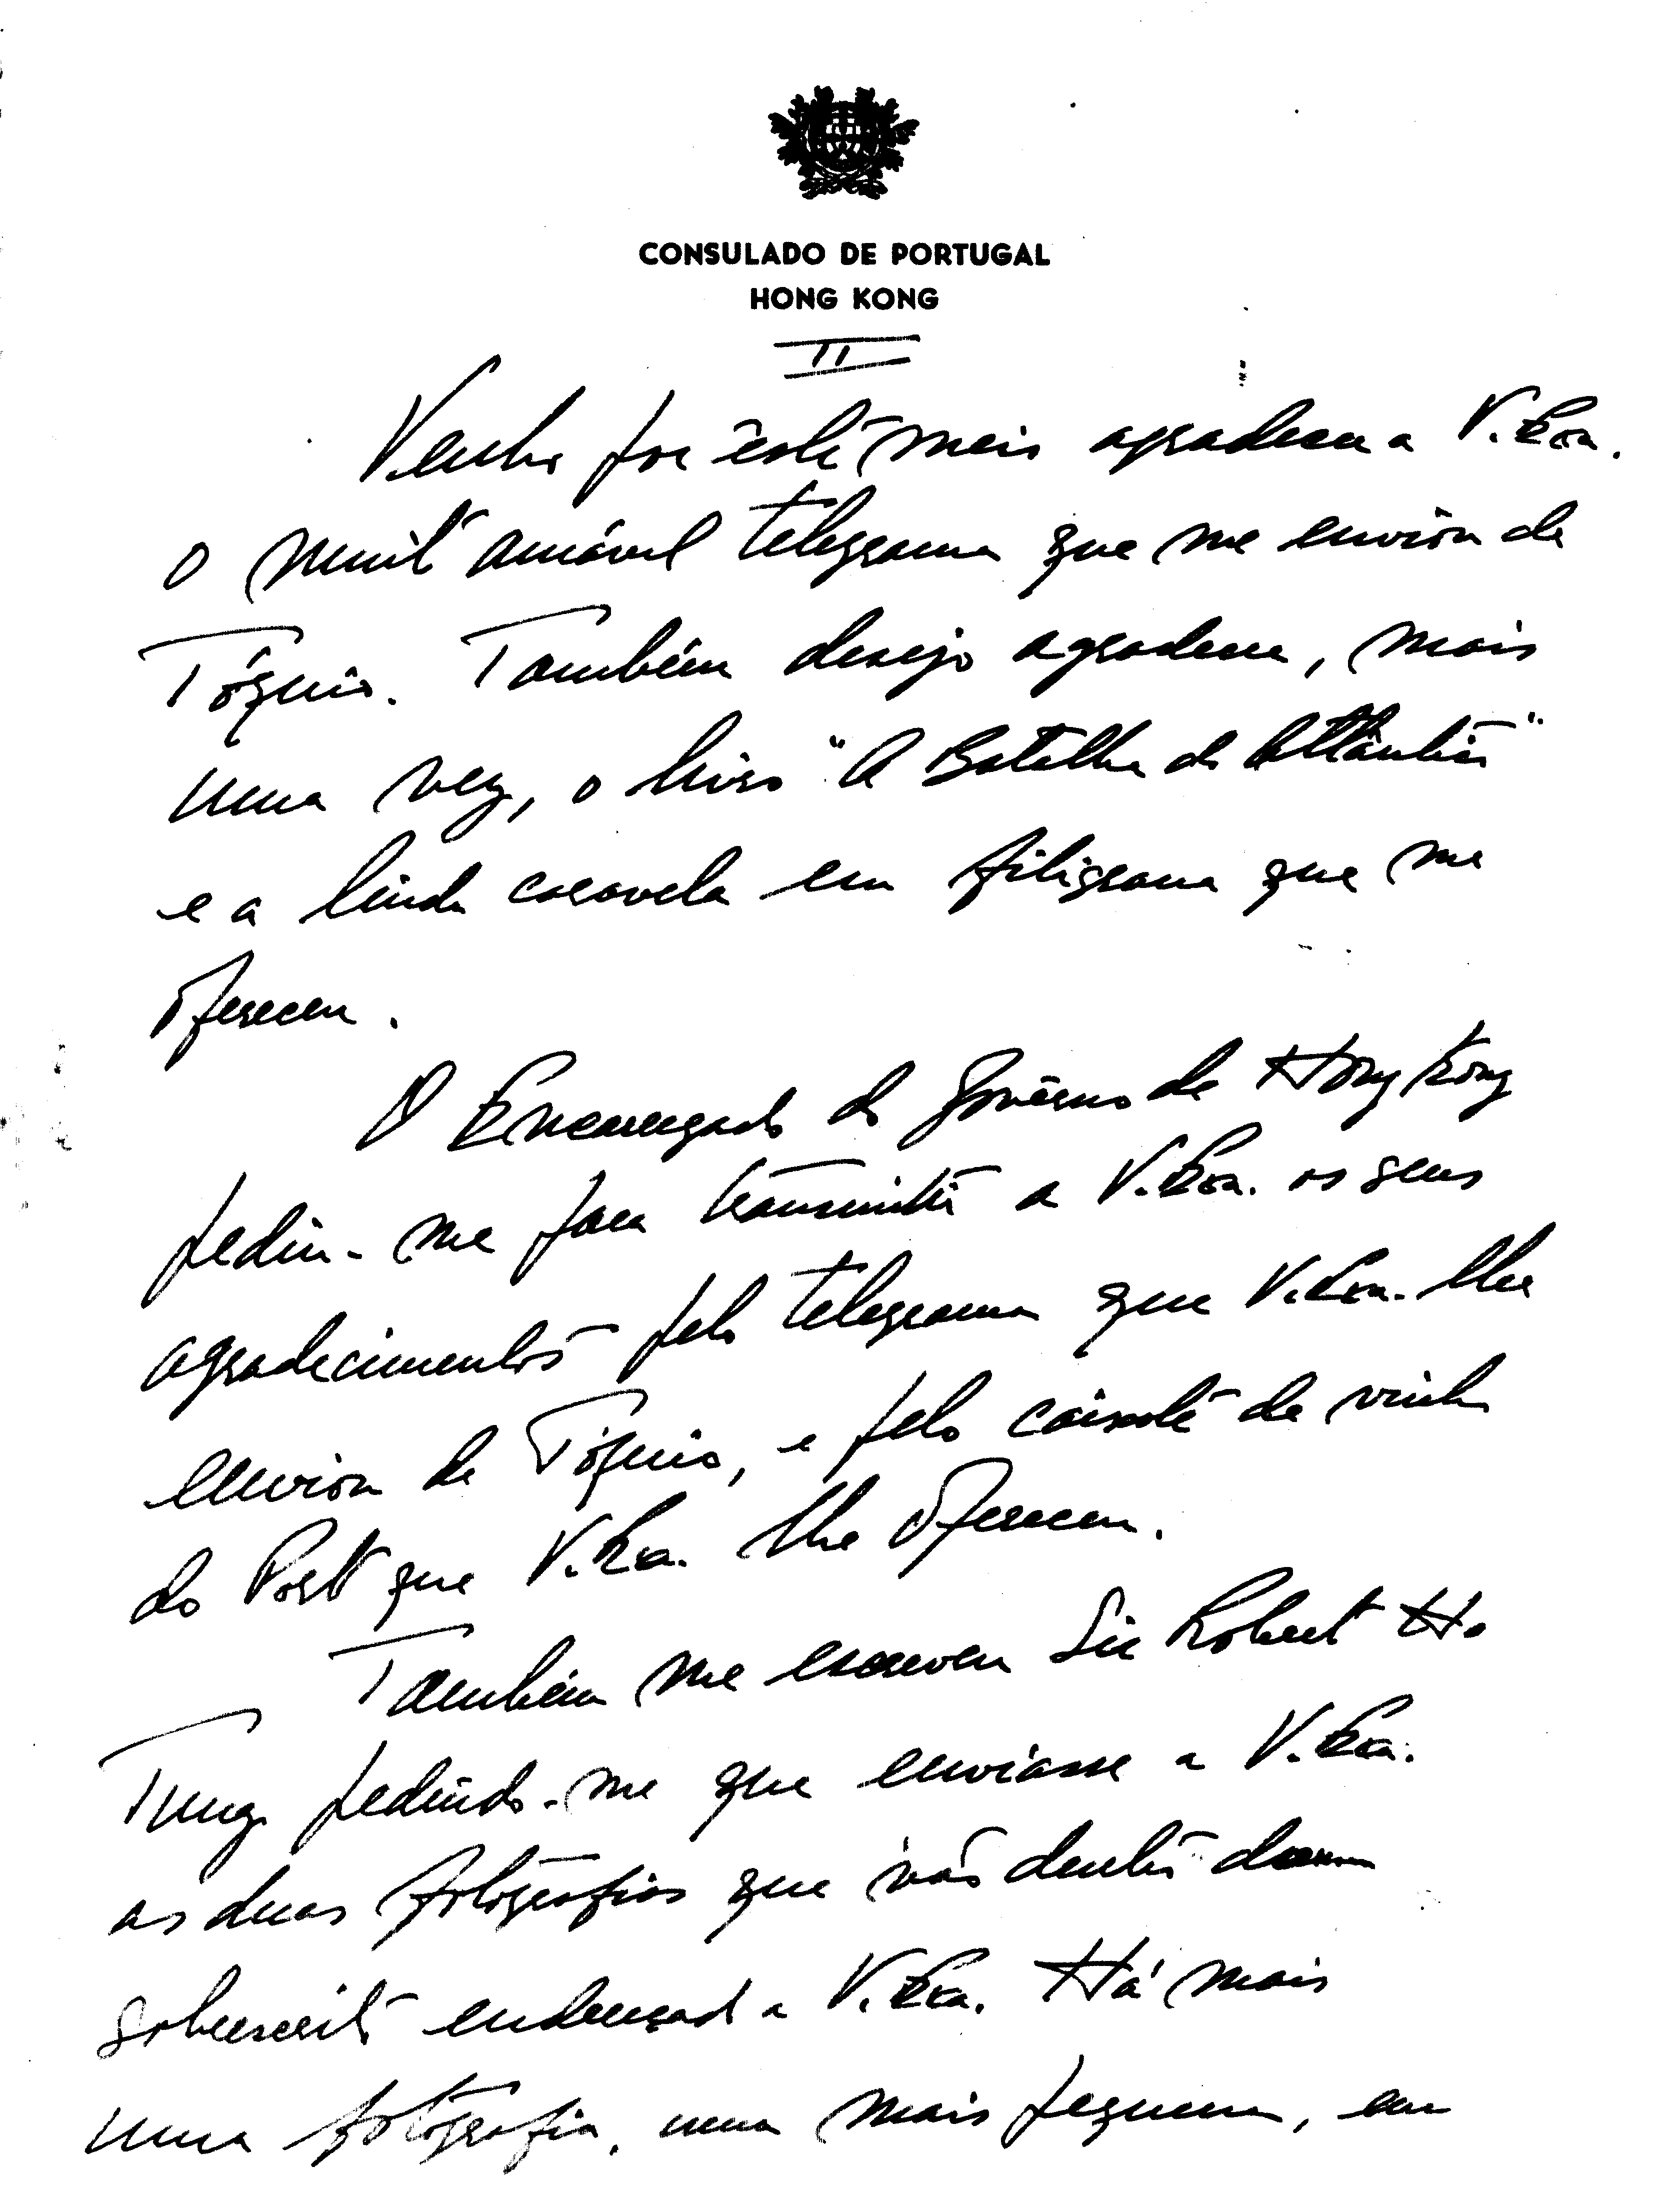 CONSULADO DE PORTUGAL
HONG KONG
II
Venho por êste meio agradecer a V. Exa.
o muito amável telegrama que me enviou de
Tóquio. Também desejo agradecer, mais
uma vez, o livro "A Batalha do Atlântico"
e a linda caravela em filigrana que me
ofereceu.
O Encarregado do Govêrno de Hong Kong
pediu-me para transmitir a V. Exa. os seus
agradecimentos pelo telegrama que V. Exa. lhe
enviou de Tóquio, e pelo caixote de vinho
do Porto que V. Exa. lhe ofereceu.
Também me escreveu Sir Robert Ho
Tung pedindo-me que enviasse a V. Exa.
as duas fotografias que vão dentro dum
sobrescrito endereçado a V. Exa. Há mais
uma fotografia, uma mais pequena, em